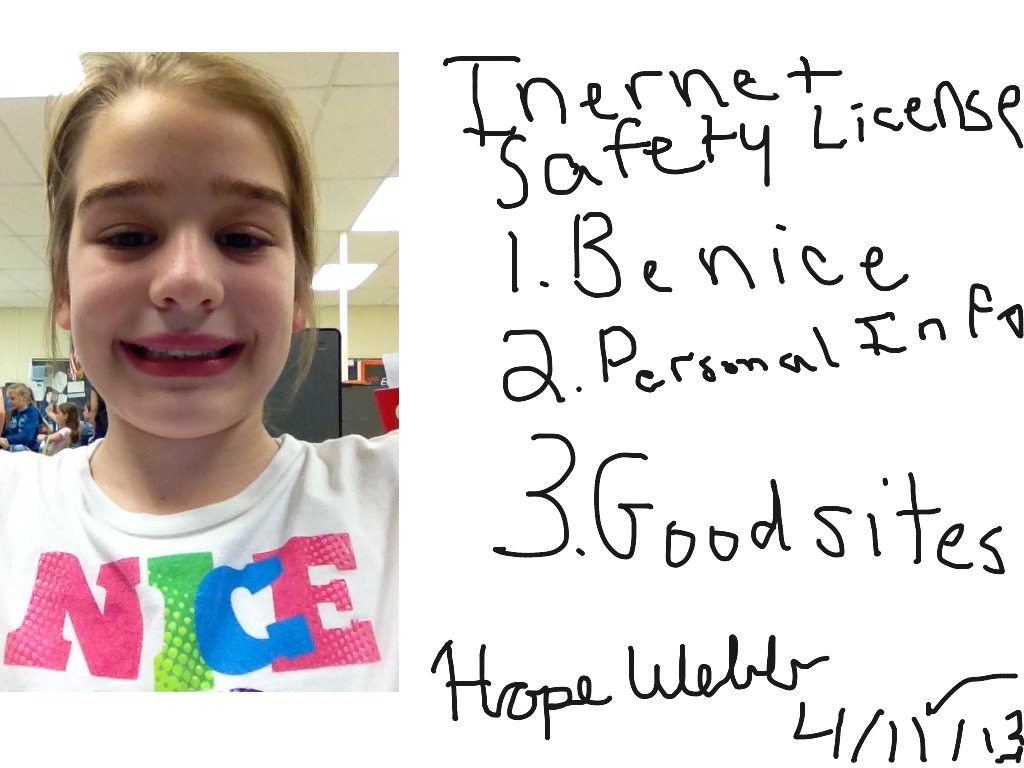 Inernet
Safety License
1. Be nice
2. Personal Info
3. Good sites
Hope Webb
4/11/13
NICE